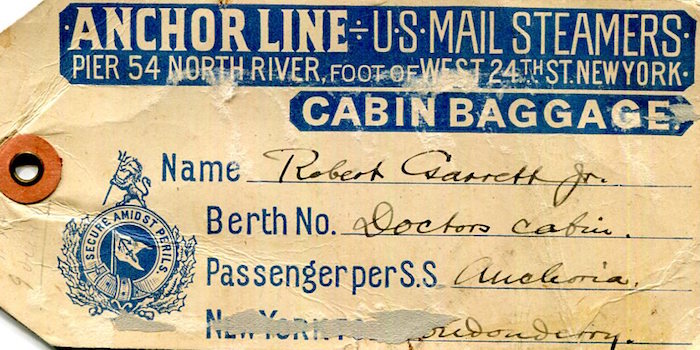 ANCHOR LINE ÷ U·S·MAIL STEAMERS·
PIER 54 NORTH RIVER, FOOT OF WEST 24TH ST. NEW YORK·
CABIN BAGGAGE.
Name Robert Garrett Jr.
Berth No. Doctors cabin.
Passenger per S.S Anchoria.
NEW YORK
SECURE AMIDST PERILS